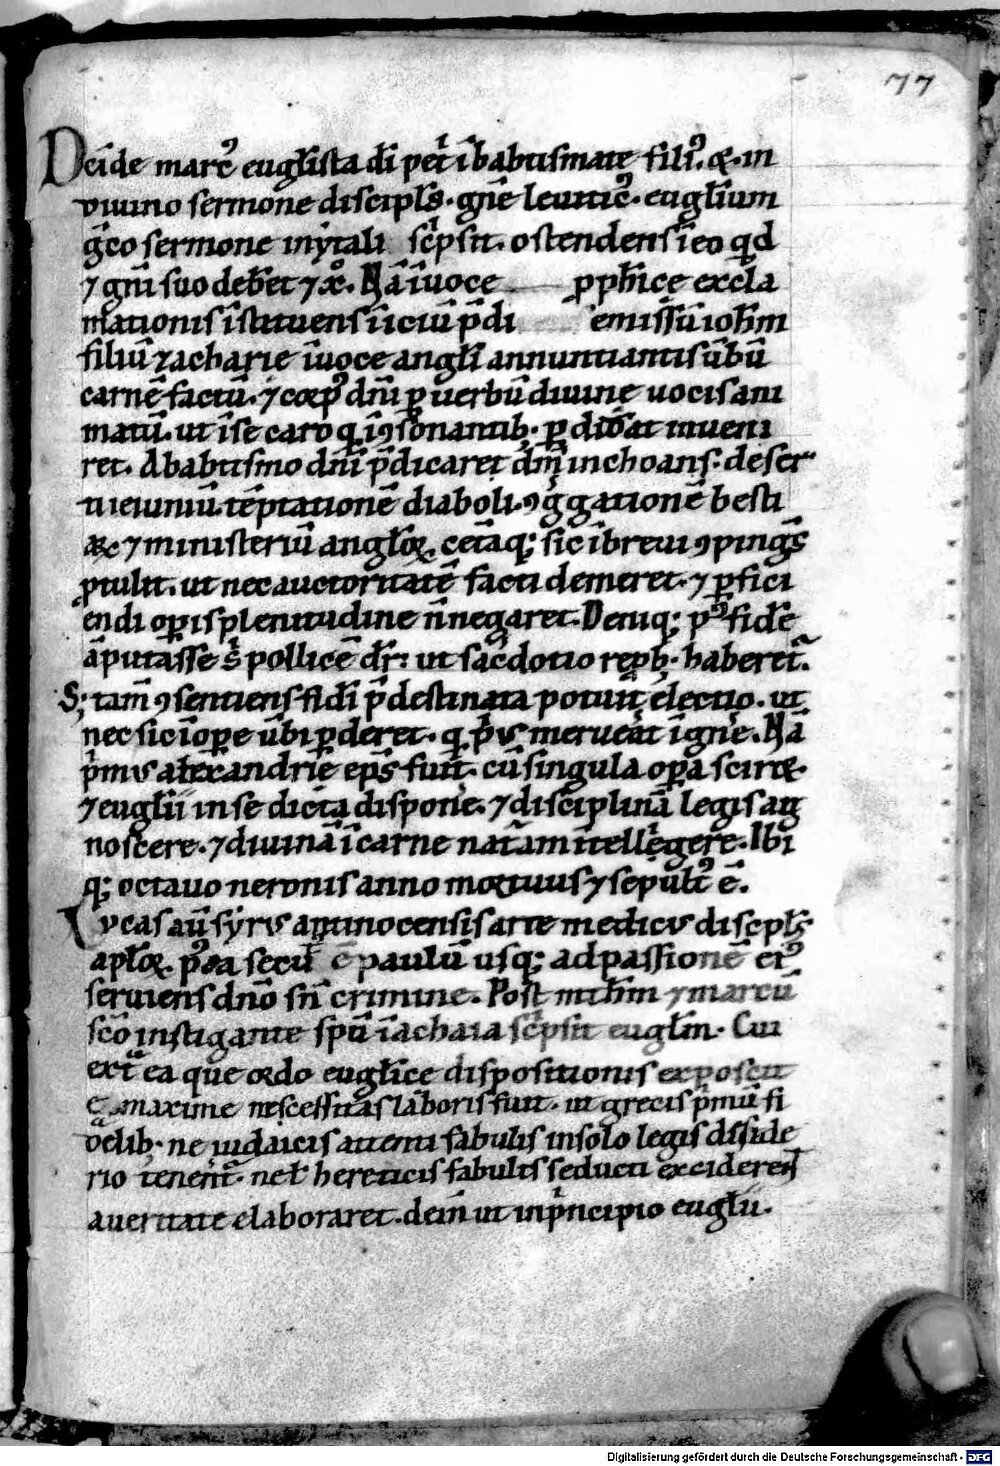 77
Deīde marc᷒ eugl̄ista dī pet̄ ī babtismate fili᷒. ꝙ. in
diuino sermone discipl̄s. gn̄e leuitic᷒. eugl̄ium
gͤco sermone inytali sc̄psit. ostendens ī eo qđ
⁊ gn̄i suo deb̄et ⁊ xp̄o. Nā ī uoce ꝓph̄ice excla
mationis īstituens īiciū p̄di emissū ioh̄m
filiū zacharie ī uoce angl̄i annuntiantis ūbū
carnē factū. ⁊ corp᷒ dn̄i ꝑ uerbū diuine uocis ani
matū. ut ī se caro
ret. A babtismo dn̄i p̄dicaret dm̄ inchoans. deser
ti ieiuniū tēptationē diaboli. ꝯḡgationē besti
aꝝ ⁊ ministeriū angl̄oꝝ. sic ī breui ꝯpinḡs
ꝓtulit. ut nec auctoritatē facti demeret. ⁊ ꝑfici
endi oꝑis plenitudine n̄ negaret. Deniq; p᷒ fidē
āputasse s̄ pollicē dr̄: ut sac̄dotio rep̄b; haberet᷑.
S; tam̄ ꝯsentiens fidī p̄destinata potuit electio. ut
nec sic ī oꝑe ūbi ꝑderet. q̄ p̄us meruerat ī gn̄e. Nā
p̄mus alexandrie ep̄s fuit. cū singula oꝑa scire
⁊ eugl̄ii in se dicta dispone. ⁊ disciplinā legis ag
noscere. ⁊ diuinā ī carne nat᷑am ītellegere. Ibi
q; octauo neronis anno mortuus ⁊ sepult᷒ ē.
Lucas aū syrus antinocensis arte medicus discipl̄s
apl̄oꝝ. p᷒ea paulū usq; ad passionē ei᷒
seruiens dn̄o sn̄ crimine. Post mth̄m ⁊ marcū
sc̄o instigante spū ī achaia sc̄psit eugl̄m. Cui
ext̄ ea que ordo eugl̄ice dispositionis exposcit
ea maxime nescessitas laboris fuit. ut grecis p̄mū fi
delib; ne iudaicis attenti fabulis in solo legis deside
rio tenent᷑. nel̄ hereticis fabulis seducti exciderent
a ueritate elaboraret. dein̄ ut in p̄ncipio eugl̄ii.
Digitalisierung gefördert durch die Deutsche Forschungsgemeinschaft - DFG